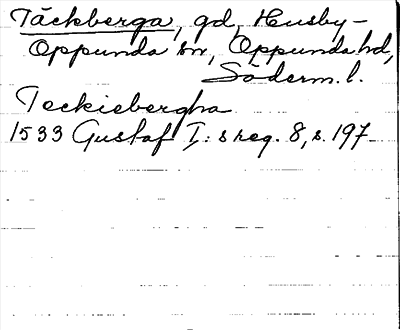 Täckberga, gd, Husby-
Oppunda sn, Oppunda hd,
Söderm. l.
Teckiebergha
1533 Gustaf I:s reg. 8, s. 197